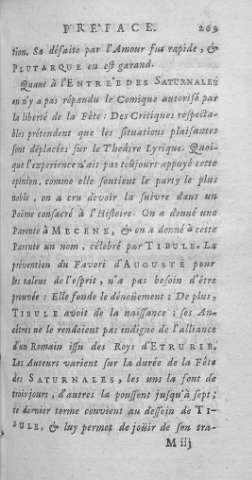 PREFACE. 209
tion. Sa défaite par l'Amour fut rapide, &
PLUTARQUE en est garand.
Quant à l'ENTRE'E DES SATURNALES
on n'y a pas répandu le Comique autorisé par
la liberté de la Fête : Des Critiques respecta-
bles prétendent que les situations plaisantes
sont déplacées sur le Theatre Lyrique. Quoi-
que l'experience n'ait pas toûjours appuyé cette
opinion, comme elle soutient le party le plus
noble, on a cru devoir la suivre dans un
Poëme consacré à l'Histoire. On a donné une
Parente à MECENE, & on a donné à cette
Parente un nom, célébré par TIBULE. La
prévention du Favori d'AUGUSTE pour
les talens de l'esprit, n'a pas besoin d'être
prouvée : Elle fonde le dénoüement : De plus,
TIBULE avoit de la naissance : ses An-
cêtres ne le rendoient pas indigne de l'alliance
d'un Romain issu des Roys d'ETRURIE.
Les Auteurs varient sur la durée de la Fête
des SATURNALES, les uns la font de
trois jours, d'autres la poussent jusqu'à sept ;
ce dernier terme convient au dessein de TI-
BULE, & luy permet de joüir de son tra-
M iij